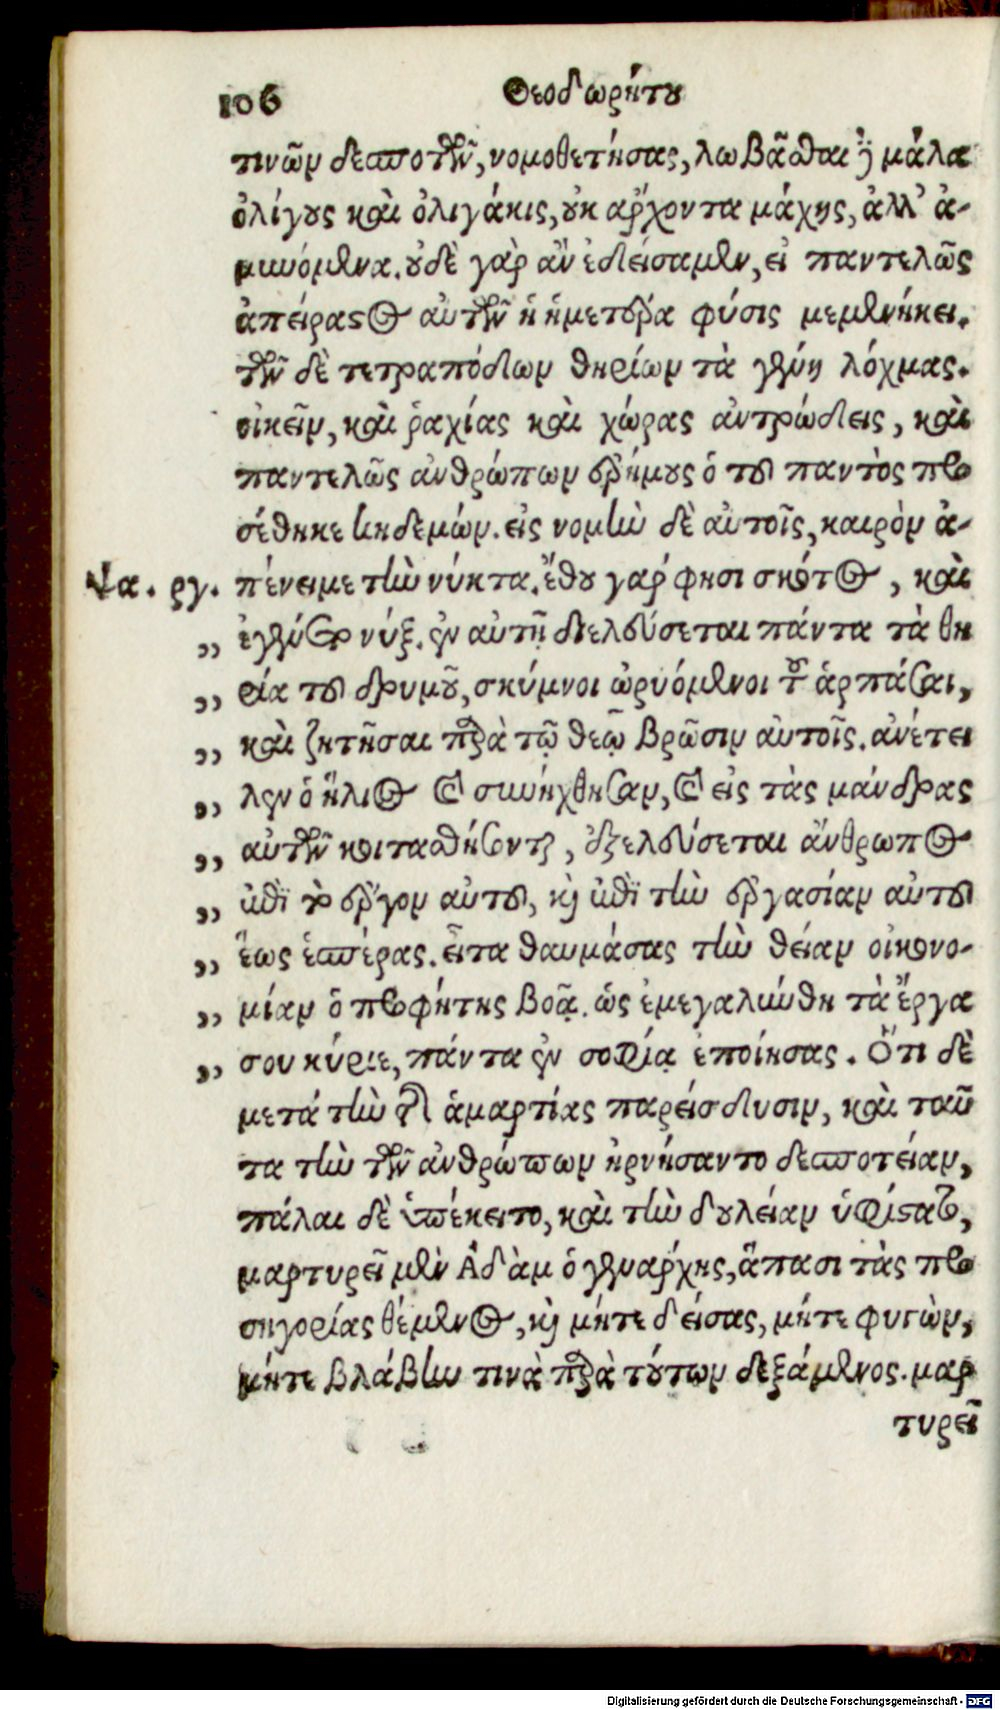 106 Θεοδωρήτου
τινῶν δεσποτῶν, νομοθετήσας, λωβᾶσθαι δὲ μάλα
ὀλίγους καὶ ὀλιγάκις, οὐκ ἄρχοντα μάχης, ἀλλ' ἀ-
μυνόμενα. οὐδὲ γὰρ ἂν ἐδείσαμεν, εἰ παντελῶς
ἀπείραστος αὐτῶν ἡ ἡμετέρα φύσις μεμενήκει.
τῶν δὲ τετραπόδων θηρίων τὰ γένη λόχμας.
οἰκεῖν, καὶ ῥαχίας καὶ χώρας ἀντρώδεις, καὶ
παντελῶς ἀνθρώπων ἐρήμους ὁ τοῦ παντὸς προ
σέθηκε κηδεμών. εἰς νομὴν δὲ αὐτοῖς, καιρὸν ἀ-
Ψα. ργ. πένειμε τὴν νύκτα. ἔθου γάρ φησι σκότος, καὶ
,, ἐγένετο νύξ. ἐν αὐτῇ διελεύσεται πάντα τὰ θη
,, ρία τοῦ δρυμοῦ, σκύμνοι ὠρυόμενοι τοῦ ἁρπάσαι,
,, καὶ ζητῆσαι παρὰ τῷ θεῷ βρῶσιν αὐτοῖς. ἀνέτει
,, λεν ὁ ἥλιος καὶ συνήχθησαν, καὶ εἰς τὰς μάνδρας
,, αὐτῶν κοιτασθήσονται, ἐξελεύσεται ἄνθρωπος
,, ἐπὶ τὸ ἔργον αὐτοῦ, καὶ ἐπὶ τὴν ἐργασίαν αὐτοῦ
,, ἕως ἑσπέρας. εἶτα θαυμάσας τὴν θείαν οἰκονο-
,, μίαν ὁ προφήτης βοᾷ. ὡς ἐμεγαλύνθη τὰ ἔργα
,, σου κύριε, πάντα ἐν σοφίᾳ ἐποίησας. Ὅτι δὲ
μετά τὴν τῆς ἁμαρτίας παρείσδυσιν, καὶ ταῦ
τα τὴν τῶν ἀνθρώπων ἠρνήσαντο δεσποτείαν,
πάλαι δὲ ὑπέκειτο, καὶ τὴν δουλείαν ὑφίστατο,
μαρτυρεῖ μὲν Ἀδὰμ ὁ γενάρχης, ἅπασι τὰς προ
σηγορίας θέμενος, καὶ μήτε δείσας, μήτε φυγὼν,
μήτε βλάβην τινὰ παρὰ τούτων δεξάμενος. μαρ
τυρεῖ
Digitalisierung gefördert durch die Deutsche Forschungsgemeinschaft - DFG